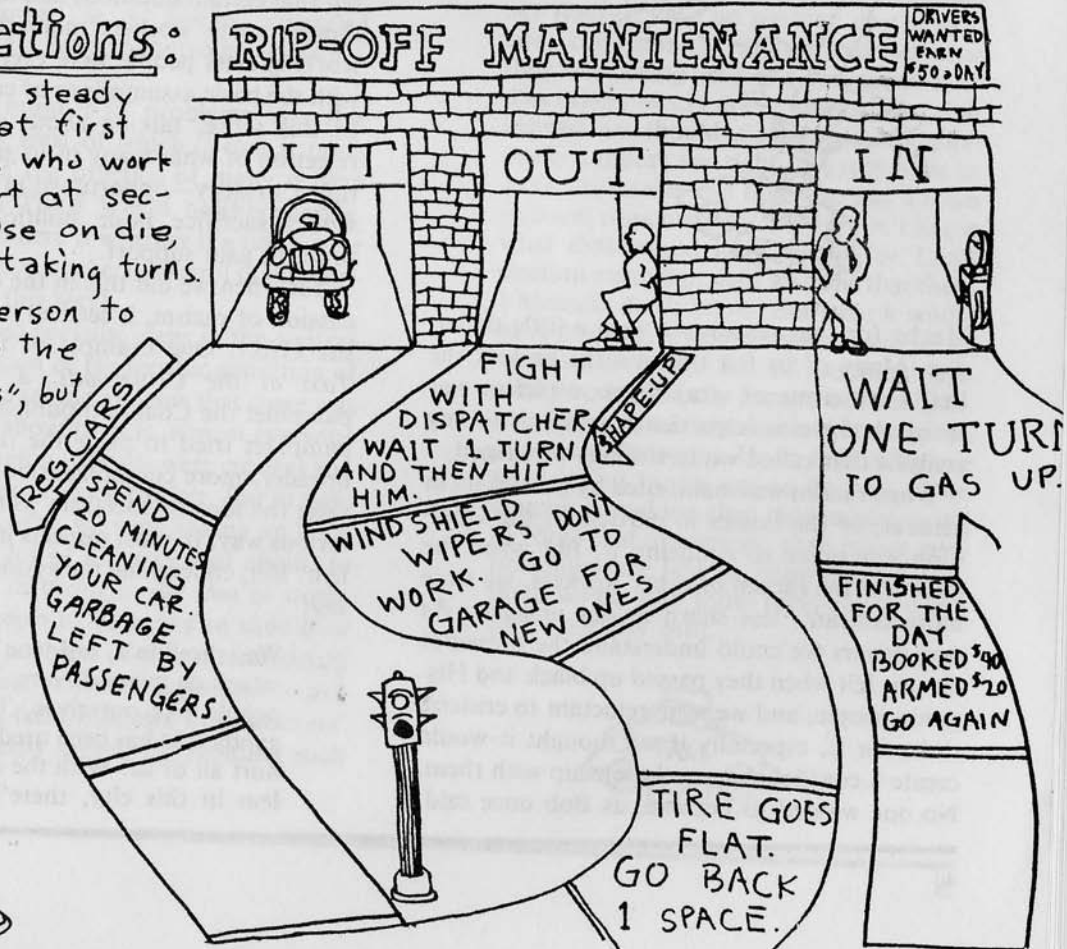 ctions:
steady
at first
who work
at sec
se on die,
taking turns.
erson to
the
", but
RIP-OFF MAINTENANCE
DRIVERS
WANTED
EARN
$50 a DAY
OUT
OUT
IN
REG. CARS
SPEND
20 MINUTES
CLEANING
YOUR CAR.
GARBAGE
LEFT BY
PASSENGERS.
FIGHT
WITH
DISPATCHER.
WAIT 1 TURN
AND THEN HIT
HIM.
SHAPE-UP
WINDSHIELD
WIPERS DON'T
WORK. GO TO
GARAGE FOR
NEW ONES.
WAIT
ONE TURN
TO GAS UP.
FINISHED
FOR THE
DAY
BOOKED $90
ARMED $20
GO AGAIN
TIRE GOES
FLAT.
GO BACK
1 SPACE.